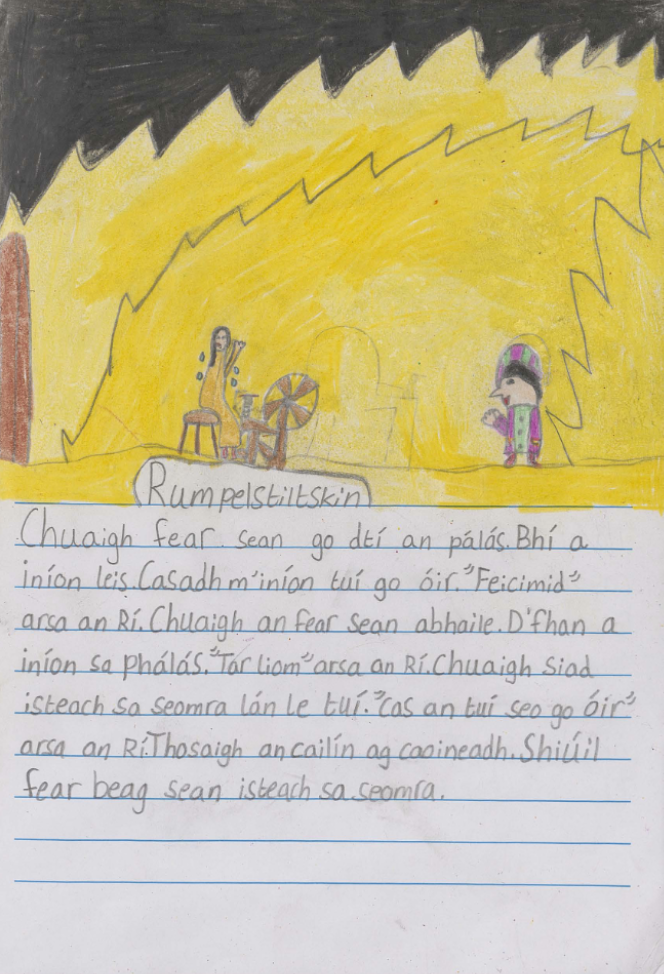 Rumpelstiltskin
Chuaigh fear sean go dtí an pálás. Bhí a
iníon leis. Casadh m'iníon tuí go óir. "Feicimid"
arsa an Rí. Chuaigh an fear sean abhaile. D'fhan a
iníon sa phálás. "Tar liom" arsa an Rí. Chuaigh siad
isteach sa seomra lán le tuí. "Cas an tuí seo go óir"
arsa an Rí. Thosaigh an cailín ag caoineadh. Shiúil
fear beag sean isteach sa seomra.